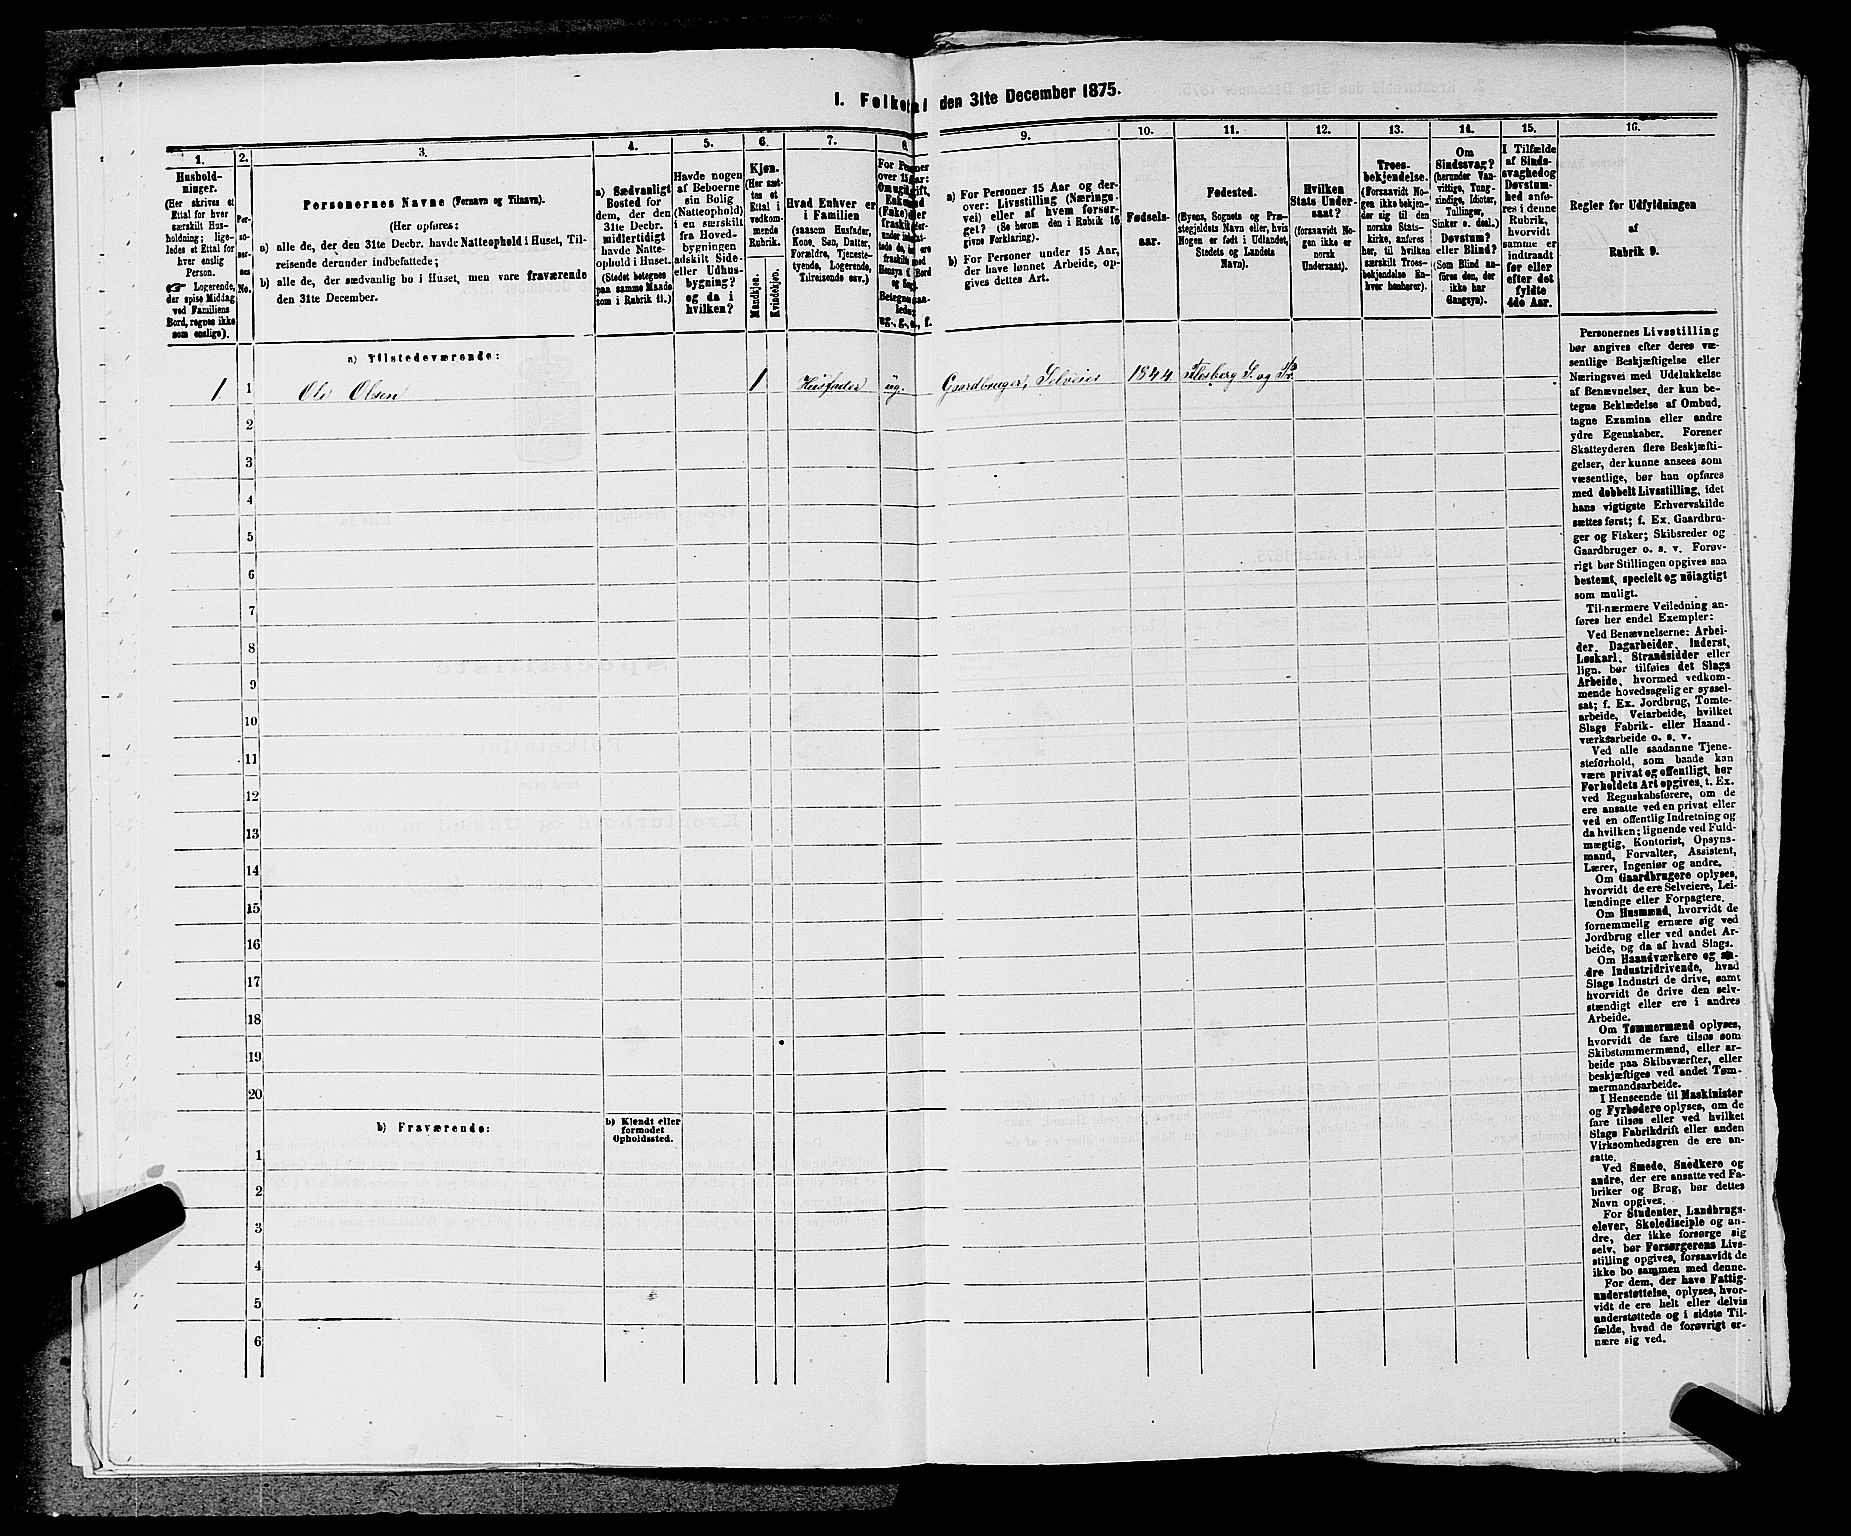 1. Folketal den 31te December 1875.
1.
2.
3.
4.
5.
6.
7.
8.
9.
10.
11.
12.
13.
14.
15.
16.
Hushold-
ninger.
(Her skrives et
Ettal for hver
særskilt Hus-
holdning; lige-
ledes et Ettal for
hver enslig
Person.
☞ Logerende,
der spise Middag
ved Familiens
Bord, regnes ikke
som enslige).
Per-
so-
ner-
nes
No.
Personernes Navne (Fornavn og Tilnavn).
(Her opføres:
a) alle de, der den 31te Decbr. havde Natteophold i Huset, Til-
reisende derunder indbefattede;
b) alle de, der sædvanlig bo i Huset, men vare fraværende
den 31te December.
a) Sædvanligt
Bosted for
dem, der den
31te Decbr.
midlertidigt
havde Natte-
ophold i Huset.
(Stedet betegnes
paa samme Maade
som i Rubrik 11.)
Havde nogen
af Beboerne
sin Bolig
(Natteophold)
i en særskilt
fra Hoved-
bygningen
adskilt Side-
eller Udhus-
bygning?
og da i
hvilken?
Kjøn.
(Her sæt-
tes et
Ettal i
vedkom-
mende
Rubrik.
Mandkjøn.
Kvindekjøn.
Hvad Enhver er
i Familien
(saasom Husfader,
Kone, Søn, Datter,
Forældre, Tjeneste-
tyende, Logerende,
Tilreisende osv.)
a) For Personer 15 Aar og der-
over: Livsstilling (Nærings-
vei) eller af hvem forsør-
get? (Se herom den i Rubrik 16
givne Forklaring).
b) For Personer under 15 Aar,
der have lønnet Arbeide, op-
gives dettes Art.
Fødsels-
aar.
Fødested.
(Byens, Sognets og Præ-
stegjeldets Navn eller, hvis
Nogen er født i Udlandet,
Stedets og Landets
Navn).
Hvilken
Stats Under-
saat?
(forsaavidt No-
gen ikke er
norsk
Undersaat).
Troes-
bekjendelse.
(Forsaavidt No-
gen ikke bekjen-
der sig til den
norske Stats-
kirke, anføres
her, til hvilken
særskilt Troes-
bekjendelse En-
hver henhører).
Om
Sindssvag?
(herunder Van-
vittige, Tung-
sindige, Idioter,
Tullinger,
Sinker o. desl.)
Døvstum?
eller Blind?
(Som Blind an-
føres den, der
ikke har
Gangsyn).
I Tilfælde
af Sinds-
svaghed og
Døvstum-
hed anfø-
res i denne
Rubrik,
hvorvidt
samme er
indtraadt
før eller
efter det
fyldte
4de Aar.
Regler for Udfyldningen
af
Rubrik 9.
a) Tilstedeværende:
1 1 Ole Olsen 1 Husfader ug. Gaardbruger, Selveier 1844 Flesberg S. og Pr.
2
3
4
5
6
7
8
9
10
11
12
13
14
15
16
17
18
19
20
b) Fraværende:
b) Kjendt eller
formodet
Opholdssted.
1
2
3
4
5
6
Personernes Livsstilling
bør angives efter deres væ-
sentlige Beskjæftigelse eller
Næringsvei med Udelukkelse
af Benævnelser, der kun be-
tegne Beklædelse af Ombud,
tagne Examina eller andre
ydre Egenskaber. Forener
Skatteyderen flere Beskjæfti-
gelser, der kunne ansees som
væsentlige, bør han opføres
med dobbelt Livsstilling, idet
hans vigtigste Erhvervskilde
sættes først; f. Ex. Gaardbru-
ger og Fisker; Skibsreder og
Gaardbruger o. s. v. Forøv-
rigt bør Stillingen opgives saa
bestemt, specielt og nøiagtigt
som muligt.
Til nærmere Veiledning an-
føres her endel Exempler:
Ved Benævnelserne: Arbei-
der, Dagarbeider, Inderst,
Løskarl, Strandsidder eller
lign. bør tilføies det Slags
Arbeide, hvormed vedkom-
mende hovedsagelig er syssel-
sat; f. Ex. Jordbrug, Tomte-
arbeide, Veiarbeide, hvilket
Slags Fabrik- eller Haand-
værksarbeide o. s. v.
Ved alle saadanne Tjene-
steforhold, som baade kan
være privat og offentligt, bør
Forholdets Art opgives, t. Ex.
ved Regnskabsførere, om de
ere ansatte ved en privat eller
ved en offentlig Indretning og
da hvilken; lignende ved Fuld-
mægtig, Kontorist, Opsyns-
mand, Forvalter, Assistent,
Lærer, Ingeniør og andre.
Om Gaardbrugere oplyses,
hvorvidt de ere Selveiere, Lei-
lændinge eller Forpagtere.
Om Husmænd, hvorvidt de
fornemmelig ernære sig ved
Jordbrug eller ved andet Ar-
beide, og da af hvad Slags.
Om Haandværkere og an-
dre Industridrivende, hvad
Slags Industri de drive, samt
hvorvidt de drive den selv-
stændigt eller ere i andres
Arbeide.
Om Tømmermænd oplyses,
hvorvidt de fare tilsøs som
Skibstømmermænd, eller ar-
beide paa Skibsværfter, eller
beskjæftiges ved andet Tøm-
mermandsarbeide.
I Henseende til Maskinister
og Fyrbødere oplyses, om de
fare tilsøs eller ved hvilket
Slags Fabrikdrift eller anden
Virksomhedsgren de ere an-
satte.
Ved Smede, Snedkere og
andre, der ere ansatte ved Fa-
briker og Brug, bør dettes
Navn opgives.
For Studenter, Landbrugs-
elever, Skoledisciple og an-
dre, der ikke forsørge sig
selv, bør Forsørgerens Livs-
stilling opgives, forsaavidt de
ikke bo sammen med denne.
For dem, der have Fattig-
understøttelse, oplyses, hvor-
vidt de ere helt eller delvis
understøttede og i sidste Til-
fælde, hvad de forøvrigt er-
nære sig ved.